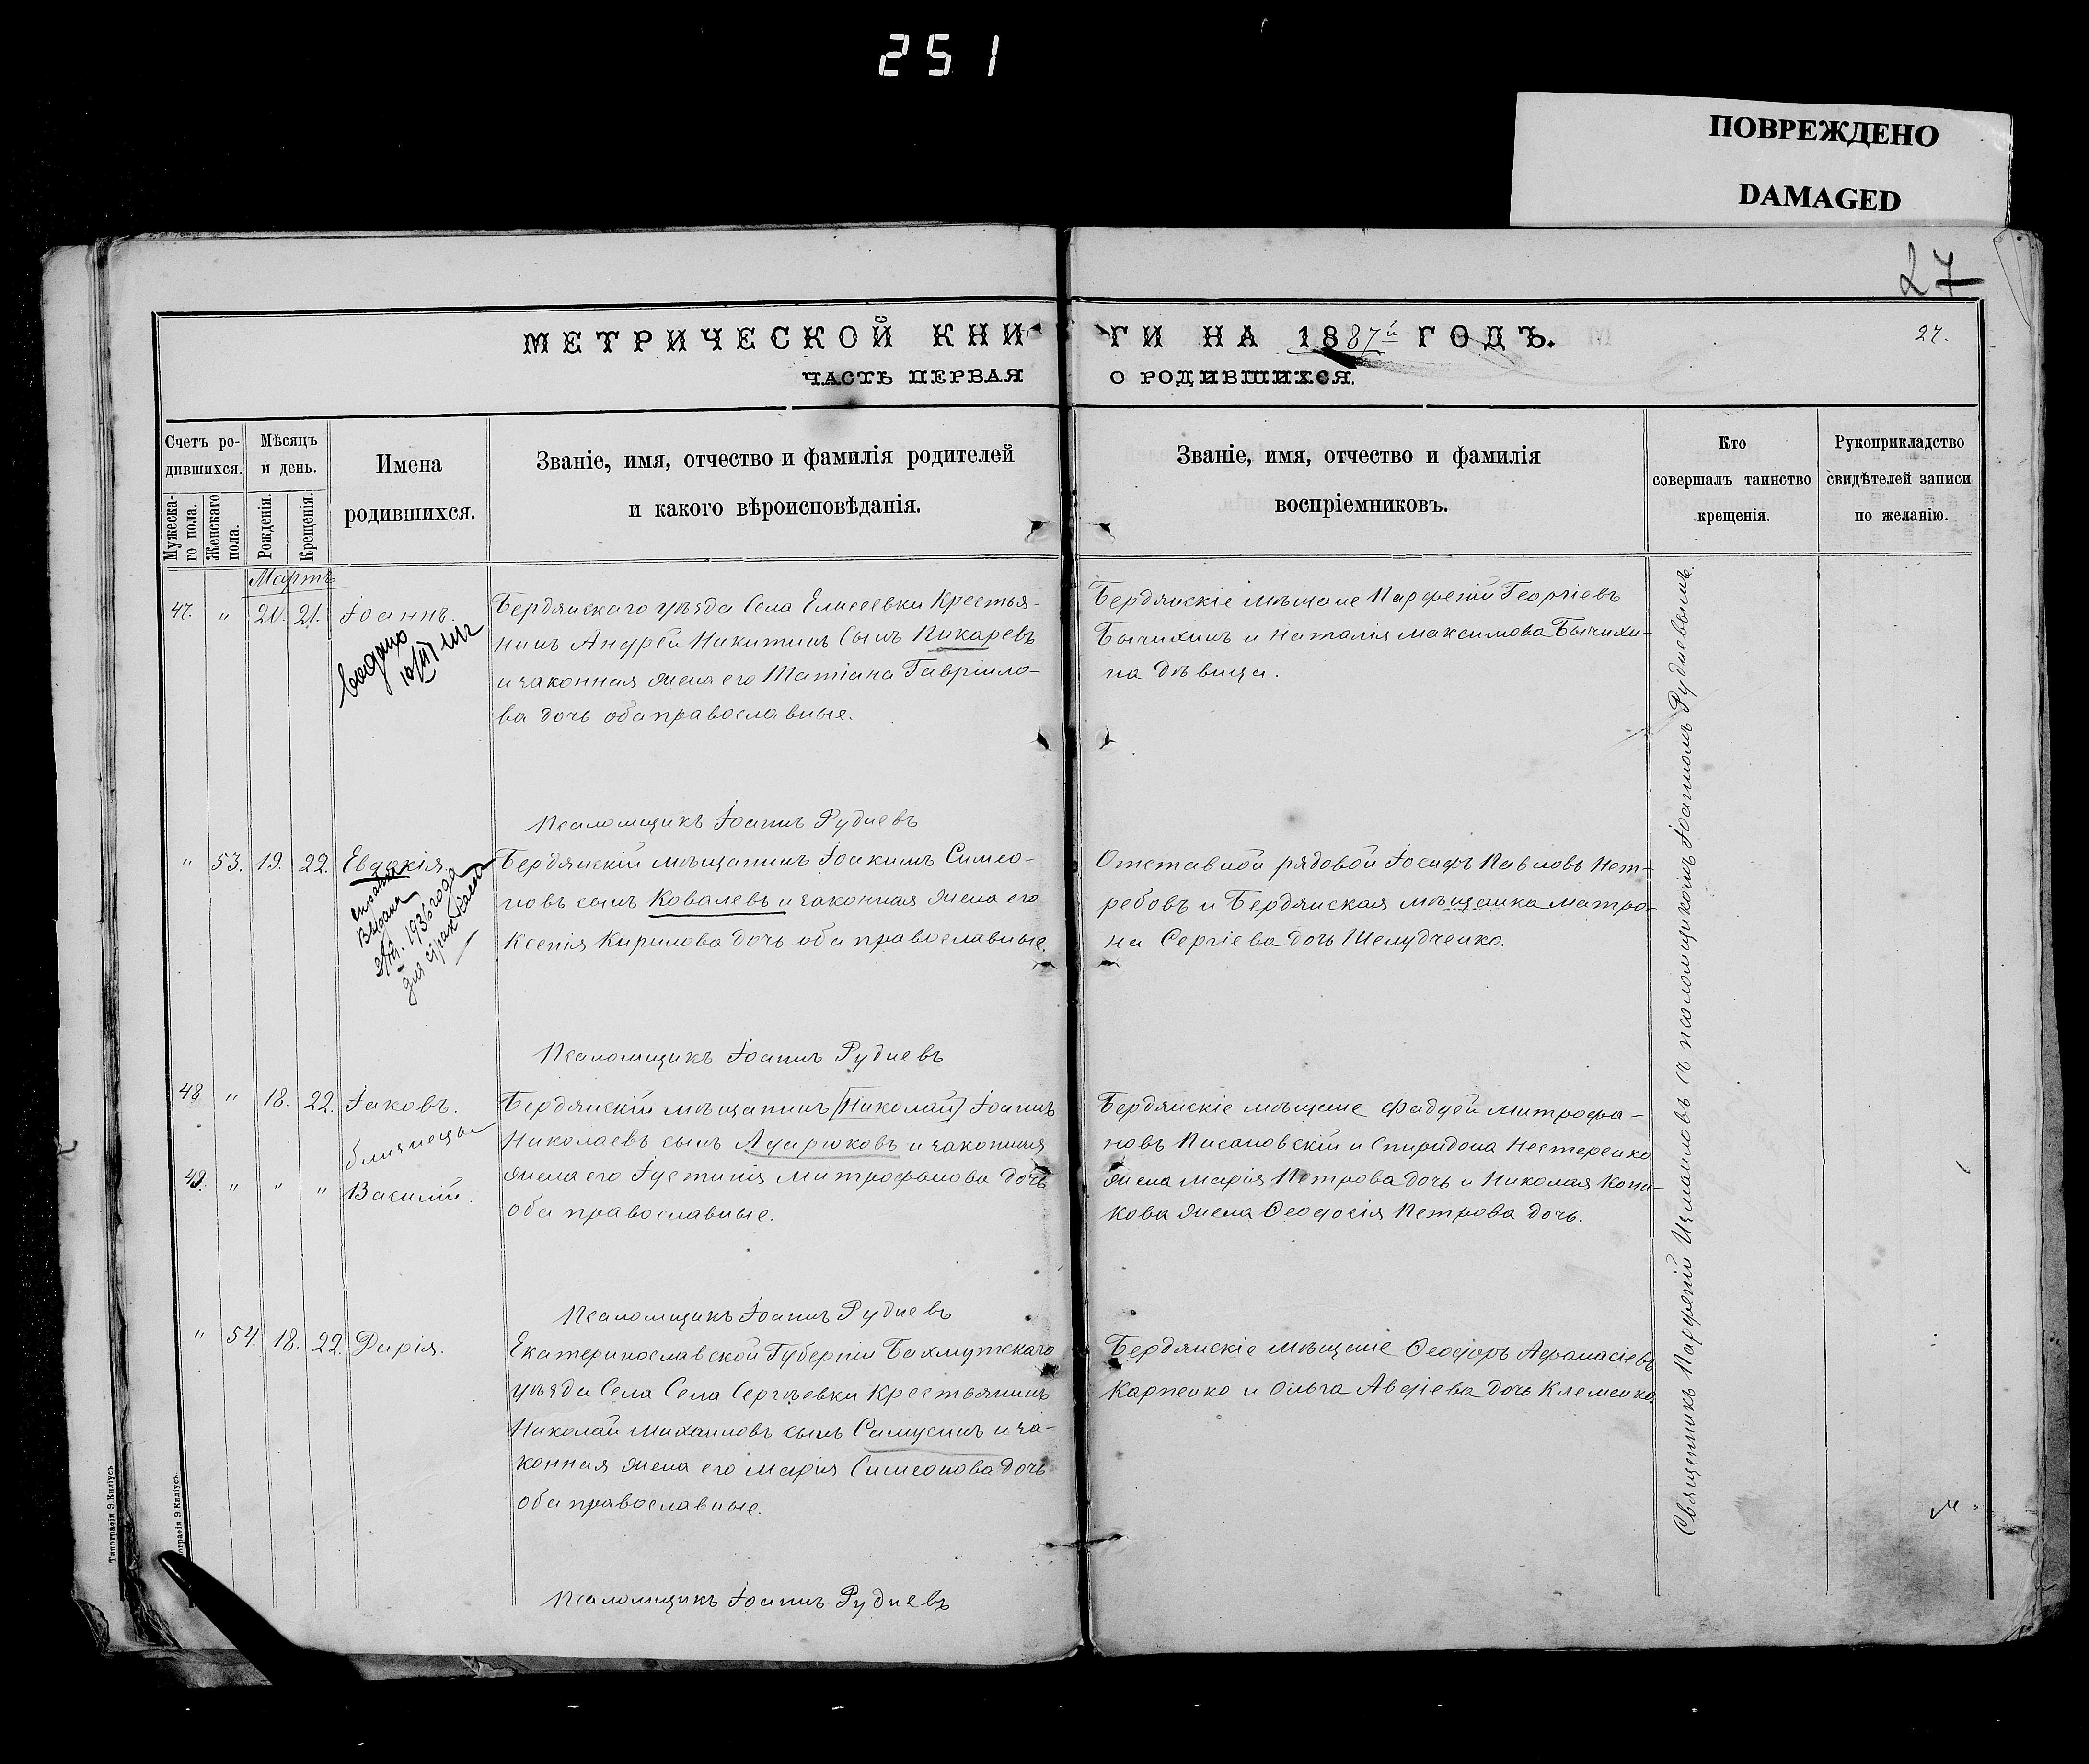 251
ПОВРЕЖДЕНО
DAMAGED
27
МЕТРИЧЕСКОЙ КНИГИ НА 1887й ГОДЪ.
27.
ЧАСТЬ ПЕРВАЯ О РОДИВШИХСЯ.
Счетъ родившихся.
Мужескаго пола.
Женскаго пола.
Мѣсяцъ и день.
Рожденія.
Крещенія.
Имена
родившихся.
Званіе, имя, отчество и фамилія родителей
и какого вѣроисповѣданія.
Званіе, имя, отчество и фамилія
воспріемниковъ.
Кто
совершалъ таинство
крещенія.
Рукоприкладство
свидѣтелей записи
по желанію.
Мартъ
47. " 20. 21. Іоаннъ.
Бердянскаго уѣзда Села Елисеевки Крестья-
нинъ Андрей Никитинъ Сынъ Пикаревъ
и законная жена его Татіана Гавріило-
ва дочь оба православные.
Бердянскіе мѣщане Парфеній Георгіевъ
Бычихинъ и Наталія Максимова Бычихи-
на дѣвица.
Псаломщикъ Іоаннъ Рудневъ
" 53. 19. 22. Евдокія.
выдана
1936 года
Бердянскій мѣщанинъ Іоакимъ Симео-
новъ сынъ Ковалевъ и законная жена его
Ксенія Кирилова дочь оба православные.
Отставной рядовой Іосифъ Павловъ Нет-
ребовъ и Бердянская мѣщанка Матро-
на Сергіева дочь Шелудченко.
Псаломщикъ Іоаннъ Рудневъ
48 " 18. 22. Іаковъ.
близнецы
49. " " " Василій.
Бердянскій мѣщанинъ [Николай] Іоаннъ
Николаевъ сынъ Ацирюковъ и законная
жена его Іустинія Митрофанова дочь
оба православные.
Бердянскіе мѣщане Фадѣй Митрофа-
новъ Писановскій и Спиридона Нестеренко
жена Марія Петрова дочь и Николая Кони-
кова жена Ѳеодосія Петрова дочь.
Псаломщикъ Іоаннъ Рудневъ
" 54. 18. 22. Дарія.
Екатеринославской Губерніи Бахмутскаго
уѣзда Села Села Сергѣевки Крестьянинъ
Николай Михаиловъ сынъ Самусинъ и за-
конная жена его Марія Симеонова дочь
оба православные.
Бердянскіе мѣщане Ѳеодоръ Афанасіевъ
Карпенко и Ольга Авдіева дочь Клеменко.
Псаломщикъ Іоаннъ Рудневъ
Священникъ Парфеній Измаиловъ съ псаломщикомъ Іоанномъ Рудневымъ.
Типографія Э.Килiусъ.
ографія Э.Килiусъ.